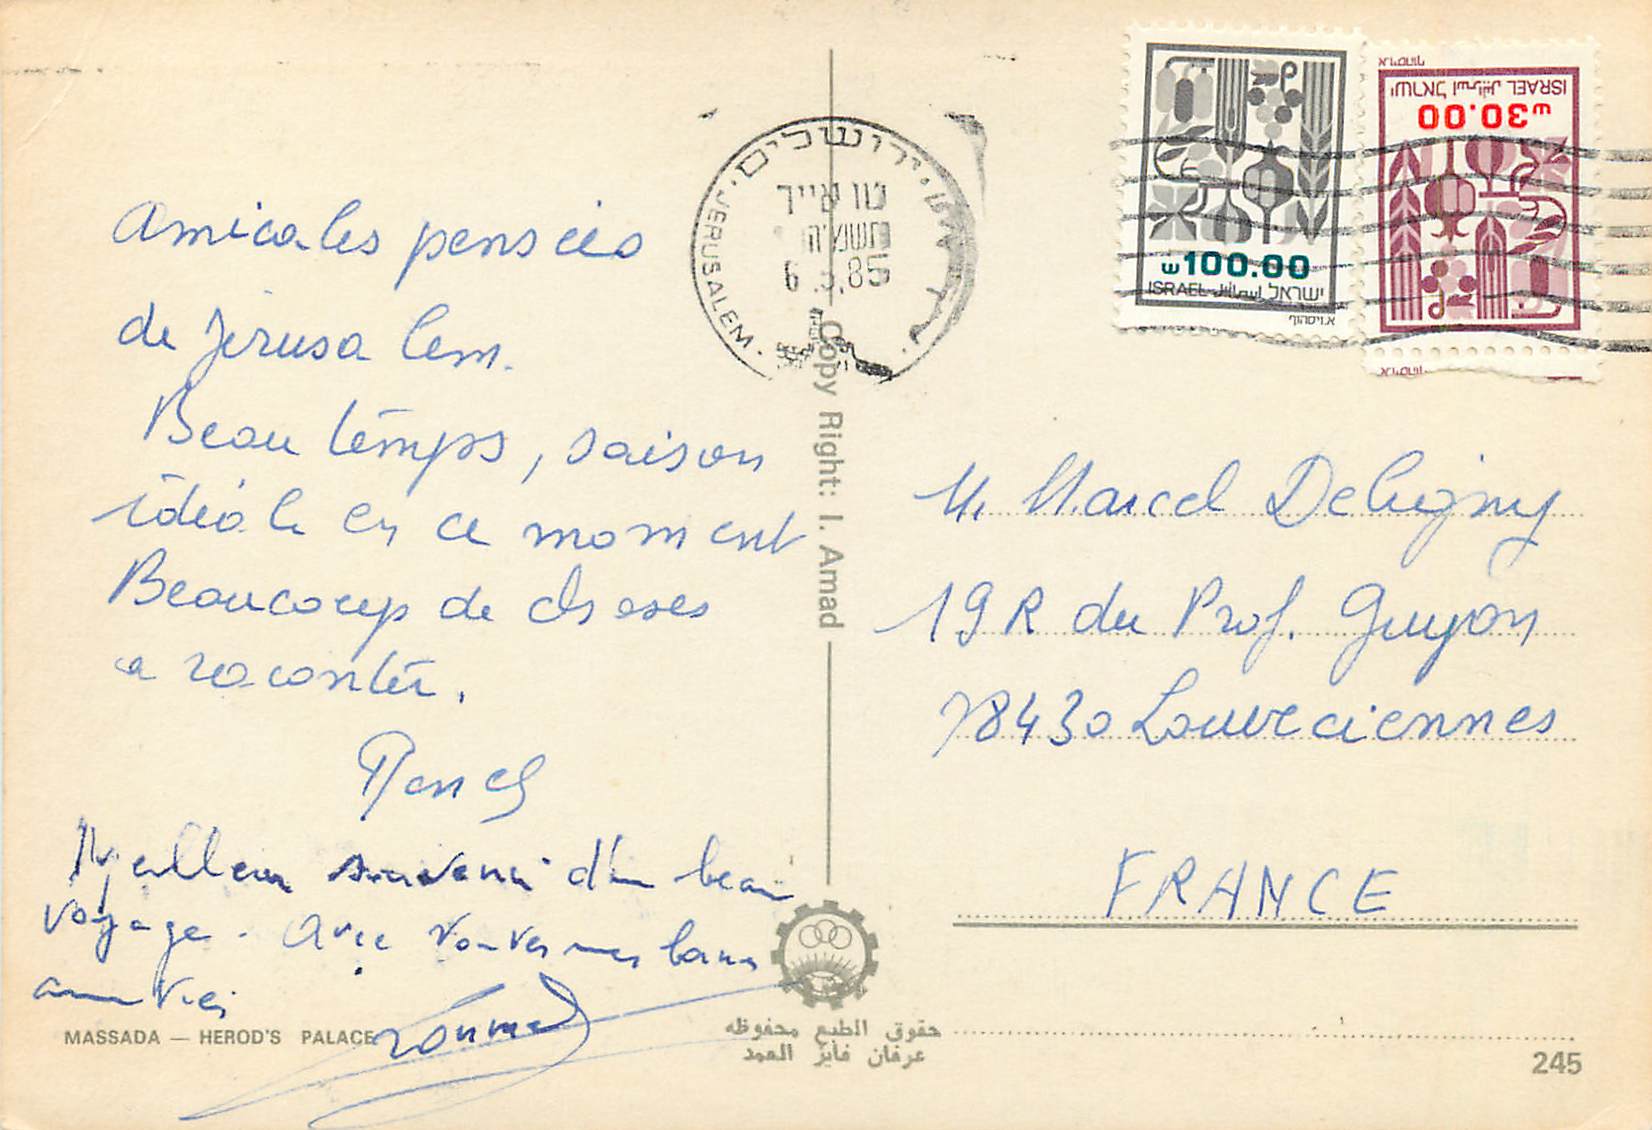 Amicales pensées
de Jérusalem.
Beau temps, saison
idéale en ce moment
Beaucoup de choses
a raconter.
Meilleur souvenir d'un beau
voyage. Avec toutes mes bonnes
amitiés
MASSADA — HEROD'S PALACE
ירושלים
JERUSALEM
טו אייר
תשמ"ה
6.5.85
Copy Right: I. Amad
حقوق الطبع محفوظه
عرفان فايز العمد
ש100.00
ISRAEL اسرائيل ישראל
א.ויסהוף
א.ויסהוף
ISRAEL اسرائيل ישראל
ש30.00
M. Marcel Deligny
19 R du Prof. Guyon
78430 Louveciennes
FRANCE
245